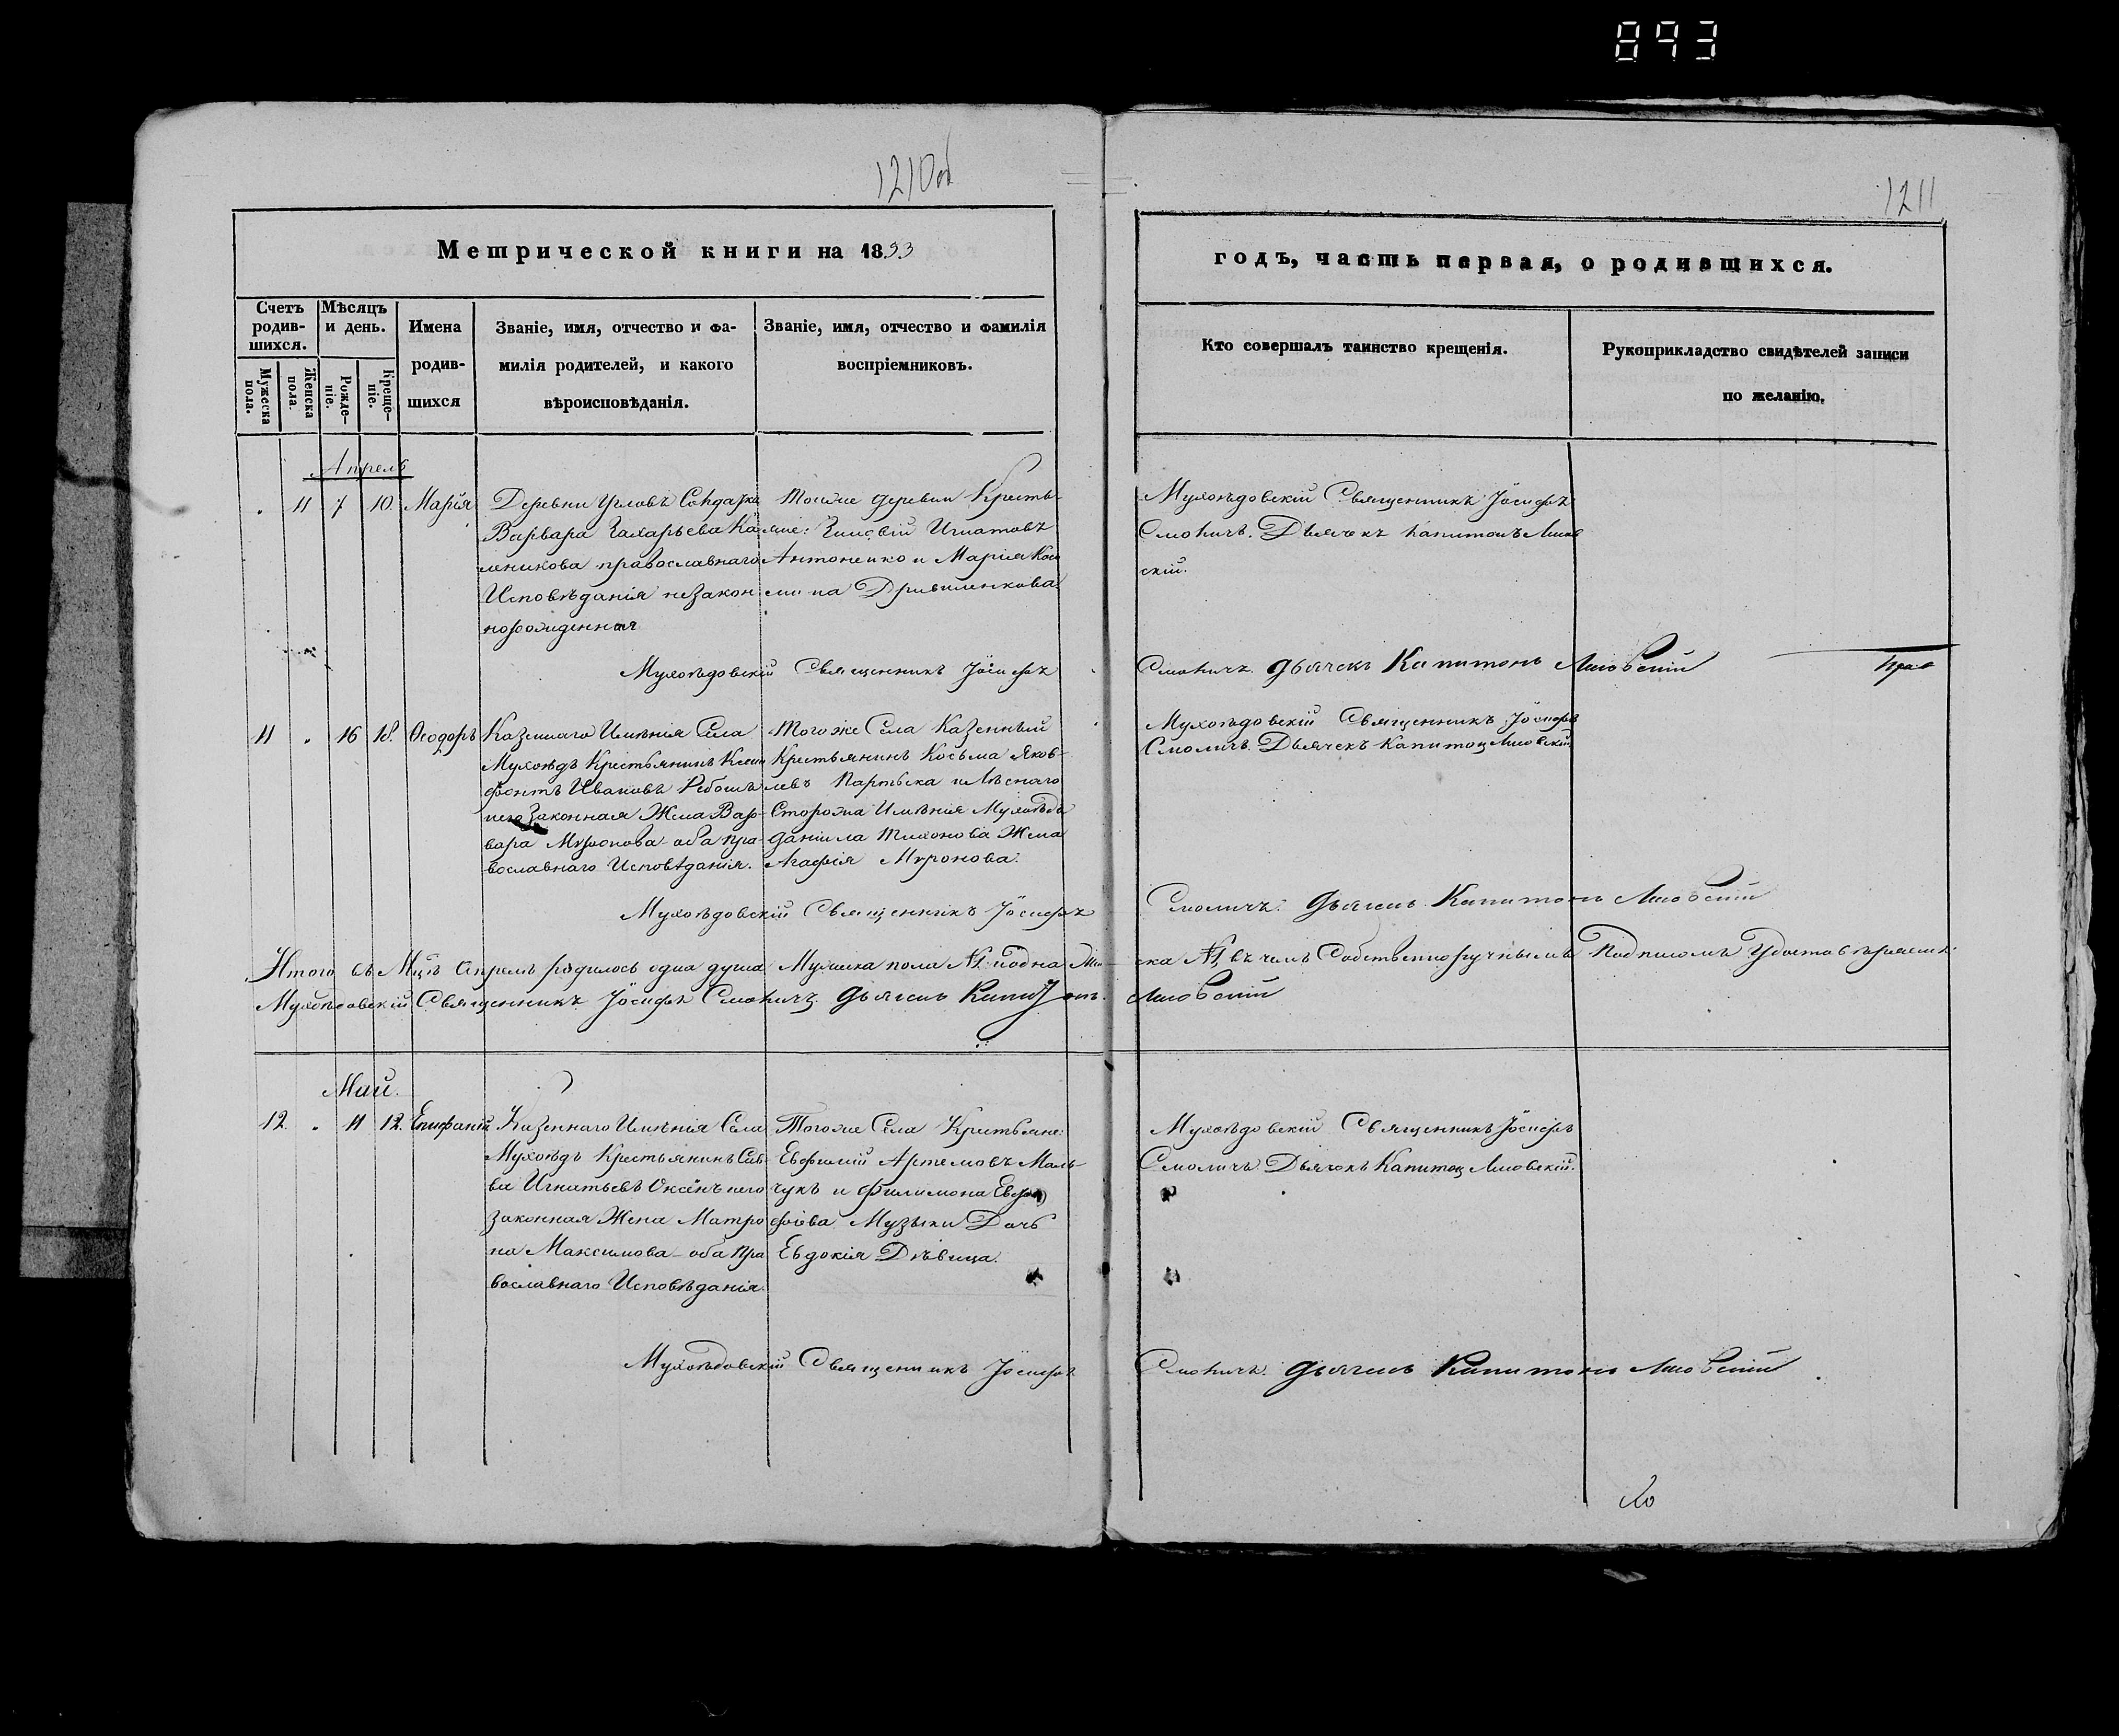 893
1210об
1211
Метрической книги на 1853
годъ, часть первая, о родившихся.
Счетъ родив-шихся.
Мѣсяцъ и день.
Имена родив-шихся
Званіе, имя, отчество и фа-
милія родителей, и какого
вѣроисповѣданія.
Званіе, имя, отчество и фамилія
воспріемниковъ.
Кто совершалъ таинство крещенія.
Рукоприкладство свидѣтелей записи
по желанію.
Мужеска пола.
Женска пола.
Рожде-ніе.
Креще-ніе.
Апрель
11 7 10. Марія
Деревни Угловъ
Варвара Захарьева Ка-
леникова православнаго
Исповѣданія незакон-
норожденная
Тоиже деревни Кресть-
яне: Игнатовъ
Антоненко и Марія
Мухоѣдовскій Священникъ Іосифъ
Смоличъ. Дьячекъ Капитонъ Лисов
скій.
Мухоѣдовскій Священникъ Іосифъ Смоличъ. Дьячекъ Капитонъ Лисовскій
11 16 18. Ѳеодоръ
Казеннаго Имѣнія Села
Мухоѣдъ Крестьянинъ
Ивановъ
него Законная Жена Вар-
вара Миронова оба пра-
вославнаго Исповѣданія.
Того же Села Казенный
Крестьянинъ Косьма Яков-
левъ и Лѣснаго
Сторожа Имѣнія Мухоѣдъ
Даніила Тихонова Жена
Агафія Миронова.
Мухоѣдовскій Священникъ Іосифъ
Смоличъ. Дьячекъ Капитонъ Лисовскій
Мухоѣдовскій Священникъ Іосифъ Смоличъ. Дьячекъ Капитонъ Лисовскій
Итого въ Мцѣ Апрелѣ родилось одна душа Мужска пола №1 и одна Жен-ска №1, въ чемъ Собственноручнымъ Подписомъ Удостовѣряемъ:
Мухоѣдовскій Священникъ Іосифъ Смоличъ. Дьячекъ Капитонъ Лисовскій
Май.
12 11 12. Епифаній
Казеннаго Имѣнія Села
Мухоѣдъ Крестьянинъ Сав-
ва Игнатьевъ него
законная Жена Матро
на Максимова оба Пра
вославнаго Исповѣданія.
Тогоже Села Крестьяне:
Евфимій Артемовъ Маль-
чукъ и Филимона
Музыки Дочь
Евдокія Дѣвица.
Мухоѣдовскій Священникъ Іосифъ
Смоличъ Дьячекъ Капитонъ Лисовскій.
Мухоѣдовскій Священникъ Іосифъ Смоличъ. Дьячекъ Капитонъ Лисовскій